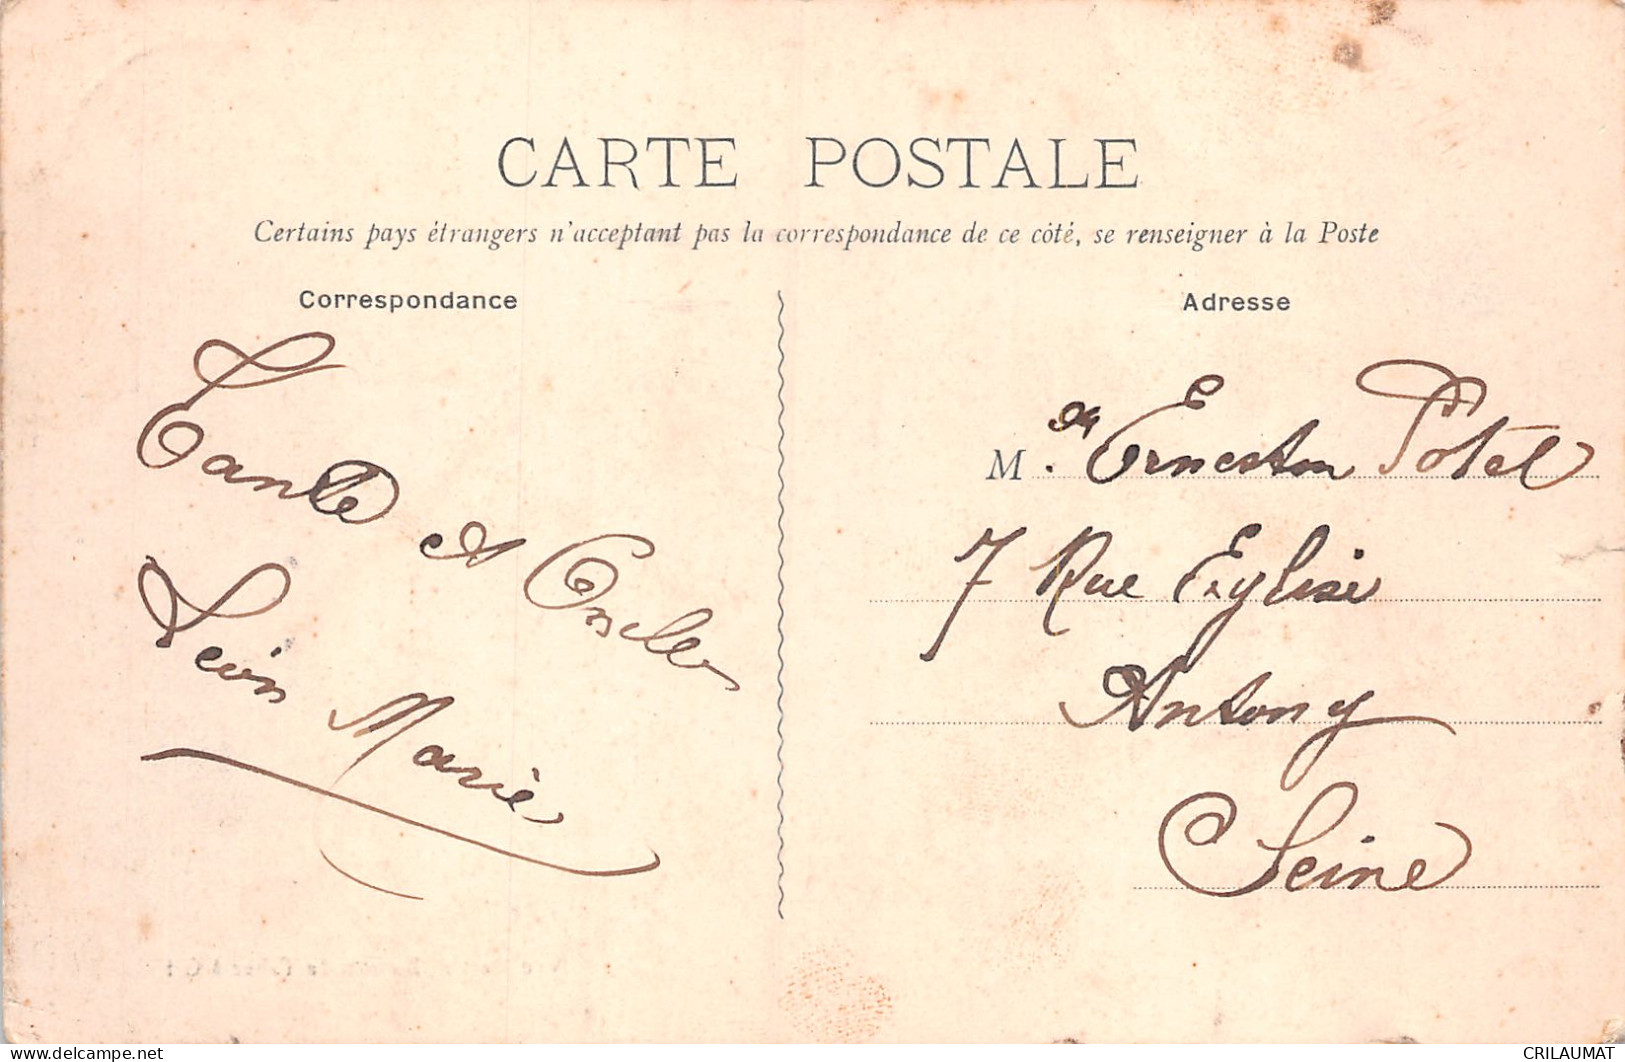 CARTE POSTALE
Certains pays étrangers n'acceptant pas la correspondance de ce côté, se renseigner à la Poste
Correspondance
Tante et Oncle
Léon Marie
Adresse
M. Potel
7 Rue Eglise
Antony
Seine
CRILAUMAT